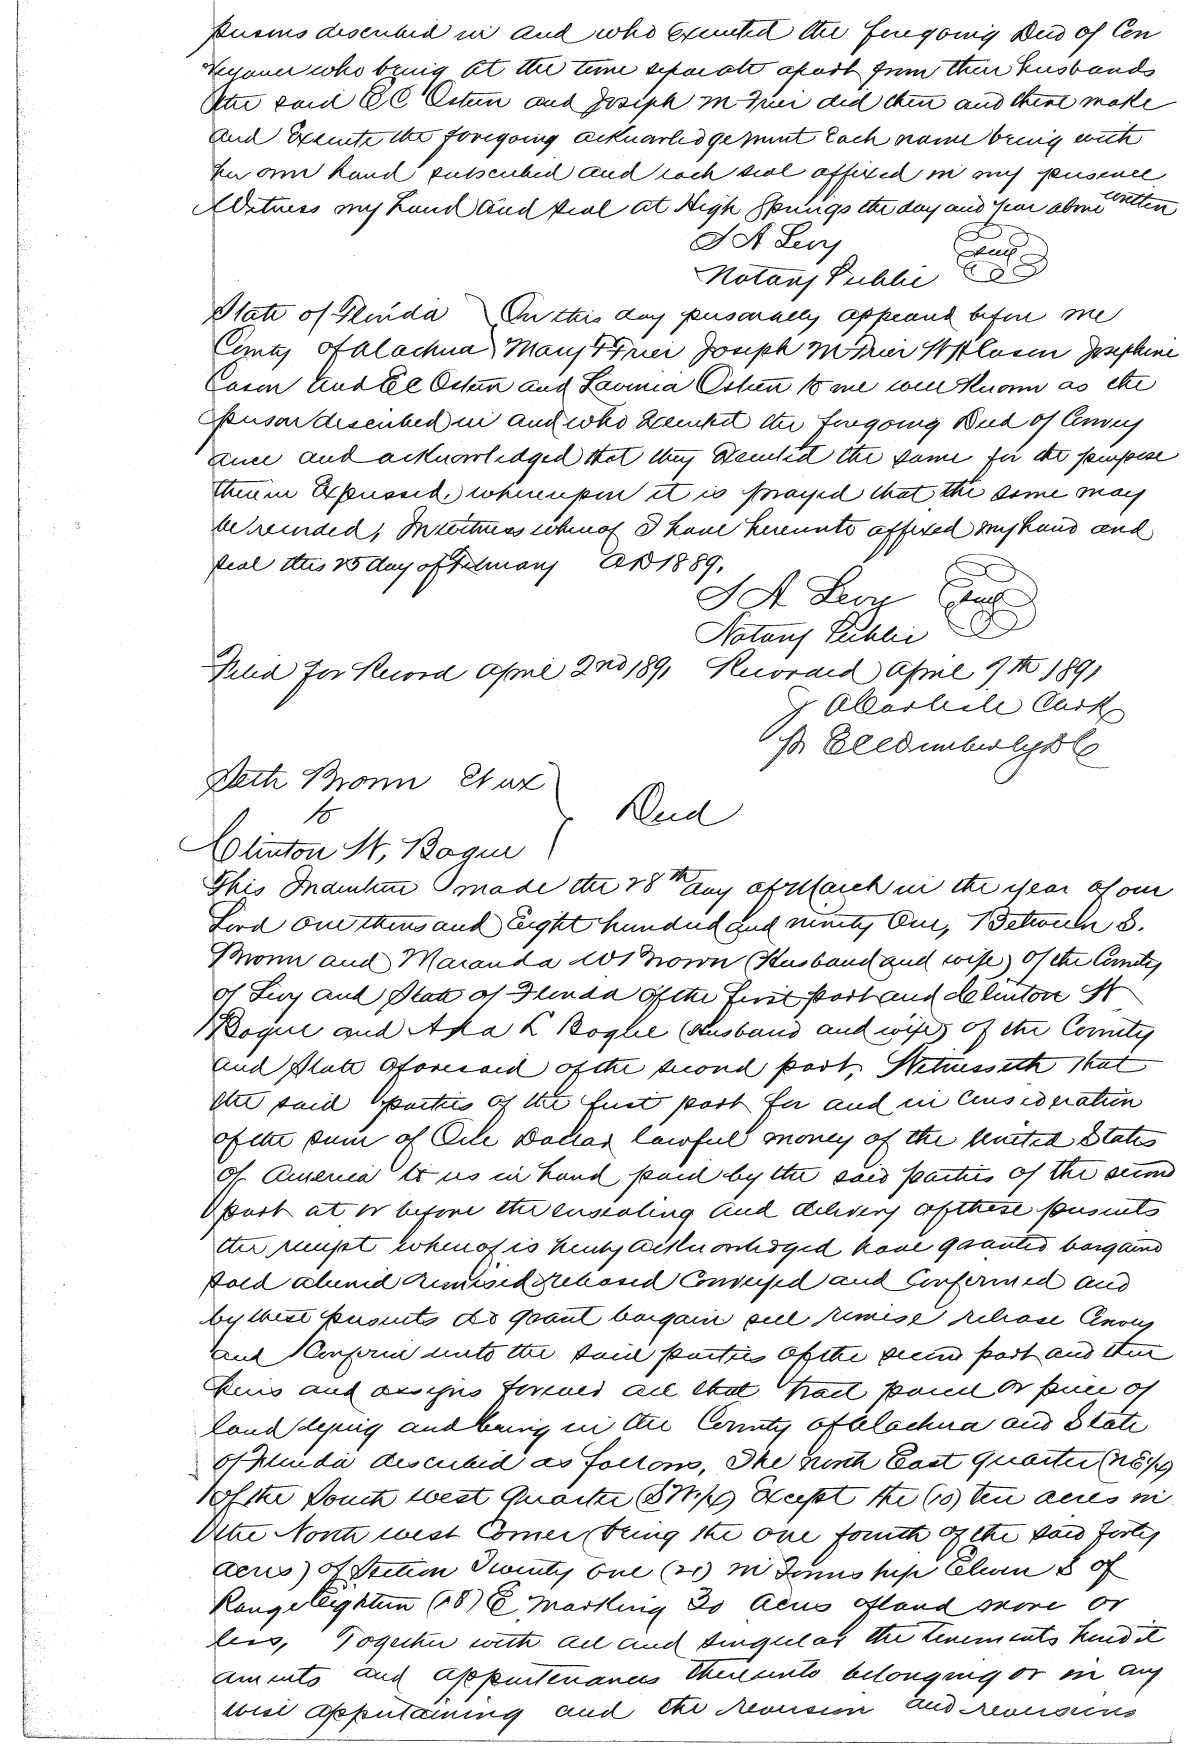 persons described in and who executed the foregoing Deed of Con
veyance who being at the time separate apart from their husbands
the said E C Osteen and Joseph M Frier did then and there make
and Execute the foregoing acknowledgement Each name being with
her own hand subscribed and each seal affixed in my presence
Witness my hand and seal at High Springs the day and year above written
S A Levy Seal
Notary Public
State of Florida On this day personally appeared before me
County of Alachua Mary F Frier Joseph M Frier W H Cason Josephine
Cason and E C Osteen and Lavinia Osteen to me well known as the
person described in and who Executed the foregoing Deed of Convey
ance and acknowledged that they Executed the same for the purpose
therein Expressed, whereupon it is prayed that the same may
be recorded, In witness whereof I have hereunto affixed my hand and
seal this 25 day of February AD 1889.
S A Levy Seal
Notary Public
Filed for Record April 2nd 1891 Recorded April 7th 1891
J A Carlisle Clerk
pr DC
Seth Brown Et ux
to Deed
Clinton W, Bogue
This Indenture made the 28th day of March in the year of our
Lord one thousand Eight hundred and ninety One, Between S.
Brown and Maranda W Brown (Husband and wife) of the County
of Levy and State of Florida of the first part and Clinton W
Bogue and Ada L Bogue (Husband and wife) of the County
and State aforesaid of the second part, Witnesseth that
the said parties of the first part for and in consideration
of the sum of One Dollar lawful money of the United States
of America to us in hand paid by the said parties of the second
part at or before the ensealing and delivery of these presents
the receipt whereof is hereby acknowledged have granted bargaind
sold aliened remised released Conveyed and Confirmed and
by these presents do grant bargain sell remise release Convey
and Confirm unto the said parties of the second part and their
heirs and assigns forever all that tract parcel or piece of
land lying and being in the County of Alachua and State
of Florida described as follows, The North East Quarter (NE1/4)
of the South West Quarter (SW1/4) Except the (10) ten acres in
the North west Corner (being the one fourth of the said forty
acres) of Section Twenty one (21) in Township Eleven S of
Range Eighteen (18) E, marking 30 acres of land more or
less, Together with all and singular the tenements heredit
aments and appurtenances thereunto belonging or in any
wise appertaining and the reversion and reversions